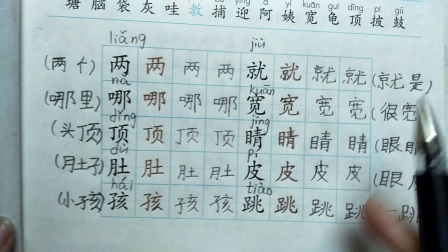 táng nǎo dài huī wā jiù bǔ yíng ā yí kuān guī dǐng pī gǔ
塘脑袋灰哇救捕迎阿姨宽龟顶披鼓
liǎng jiù
(两个) 两 两 两 两 就 就 就 就 (就是)
nǎ kuān
(哪里) 哪 哪 哪 哪 宽 宽 宽 宽 (很宽
dǐng jīng
(头顶) 顶 顶 顶 顶 睛 睛 睛 睛 (眼睛
dù pí
(肚子) 肚 肚 肚 肚 皮 皮 皮 皮 (眼皮
hái tiào
(小孩) 孩 孩 孩 孩 跳 跳 跳 跳 跳